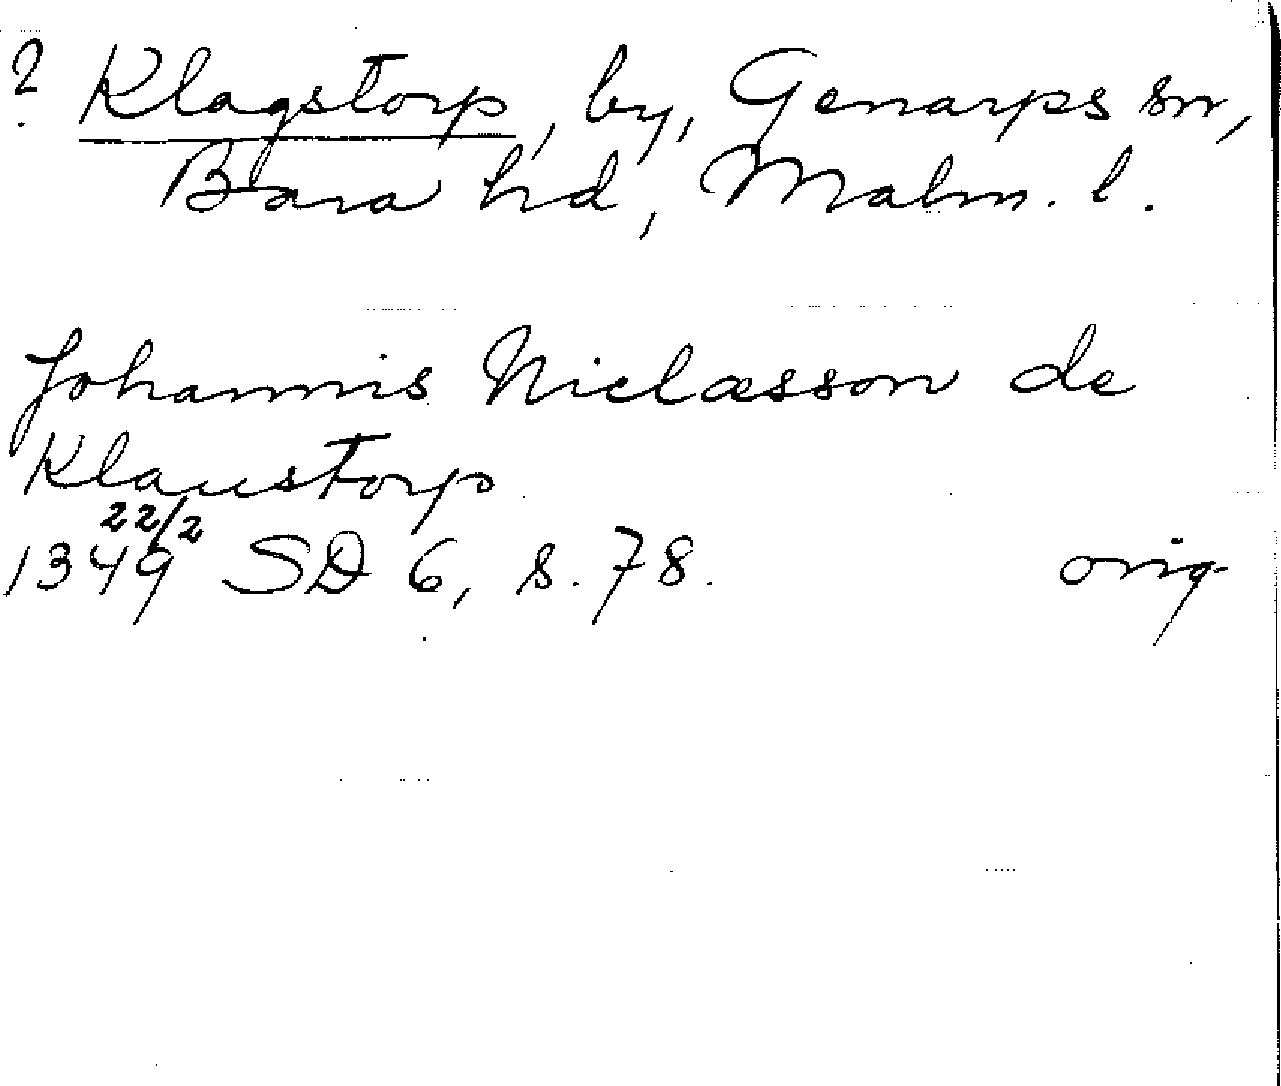 ? Klagstorp, by, Genarps sn,
Bara hd, Malm. l.
Johannis Niclæsson de
Klaustorp
22/2
1349 SD 6, s. 78. orig